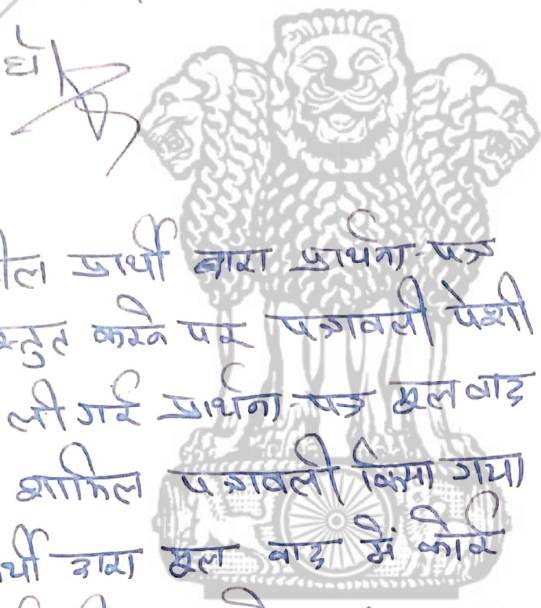 धे
ील प्रार्थी द्वारा प्रार्थना-पत्र
स्तुत करने पर पत्रावली पेशी
ली गई प्रार्थना-पत्र मूल वाद
शामिल पत्रावली किया गया
र्थी द्वारा मूल वाद में कोई